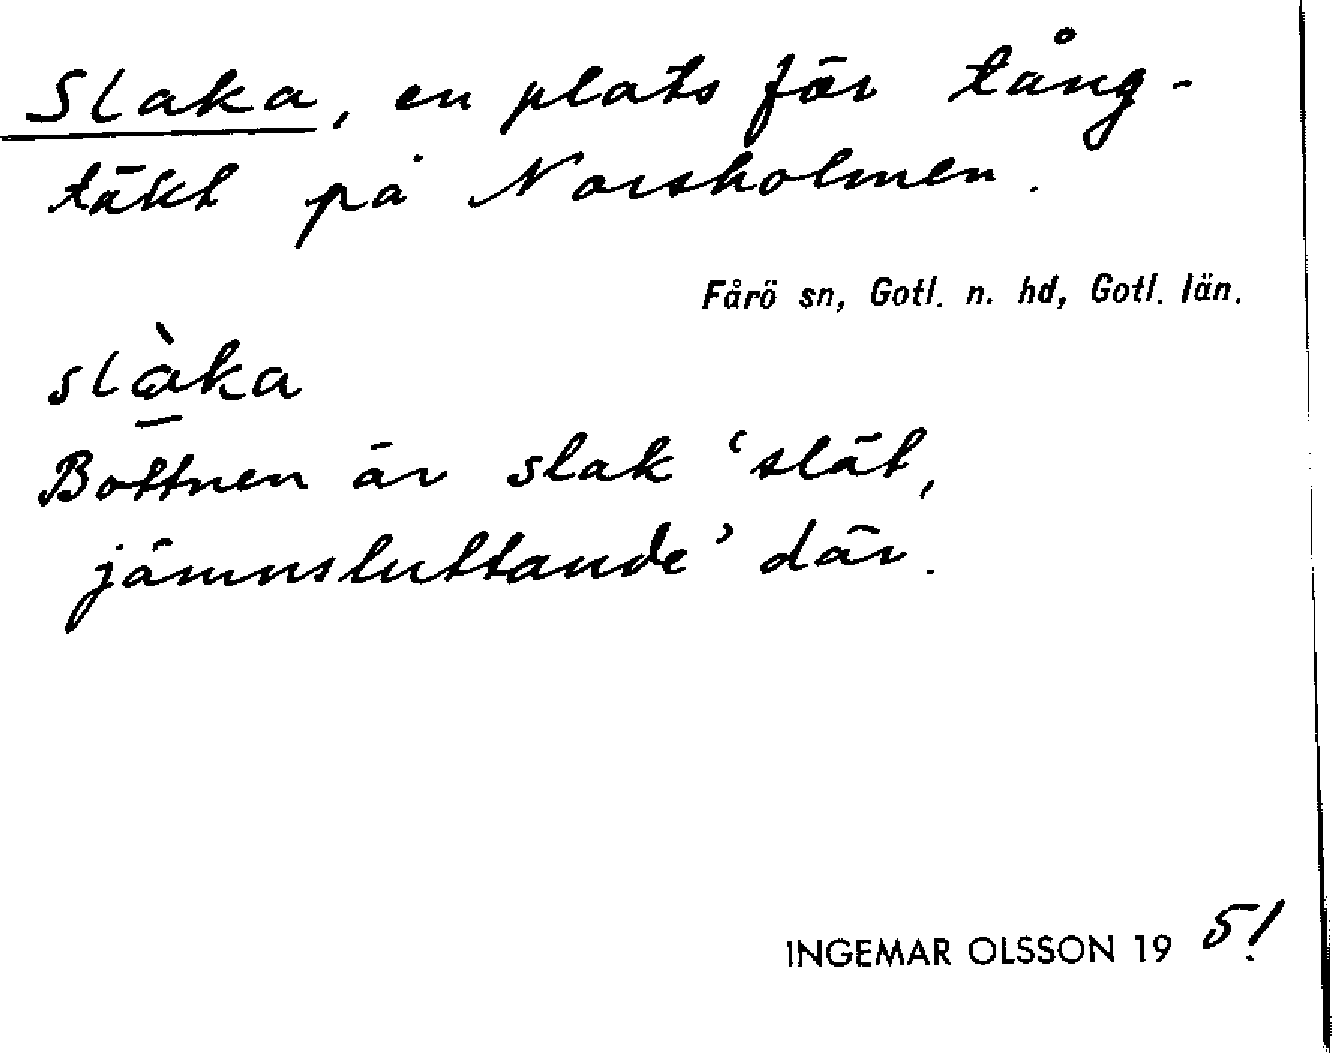 Slaka, en plats för tång-
täkt på Norsholmen.
Fårö sn, Gotl. n. hd, Gotl. län.
slàka
Bottnen är slak ‘slät,
jämnsluttande’ där.
INGEMAR OLSSON 1951